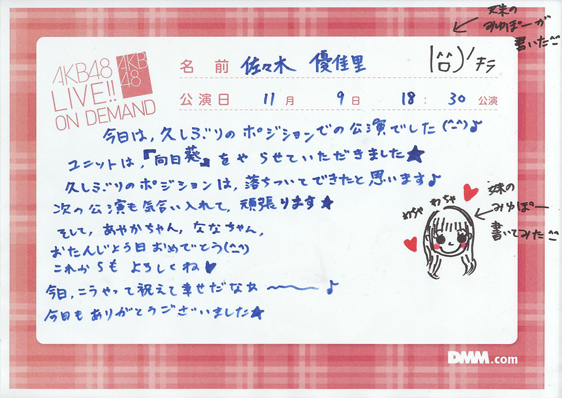 AKB48
LIVE!!
ON DEMAND
AKB
48
名 前 佐々木 優佳里
妹の
みゆぽーが
書いた^^
公演日 11月 9日 18:30 公演
今日は、久しぶりのポジションでの公演でした(^-^)♪
ユニットは、『向日葵』をやらせていただきました★
久しぶりのポジションは、落ちついてできたと思います♪
次の公演も気合い入れて、頑張ります★
そして、あやかちゃん、ななちゃん、
おたんじょう日おめでとう(^-^)
これからも よろしくね♥
今日、こうやって祝えて幸せだなぁ〜〜〜♪
今日もありがとうございました★
妹の
みゆぽー
書いてみた^^
DMM.com